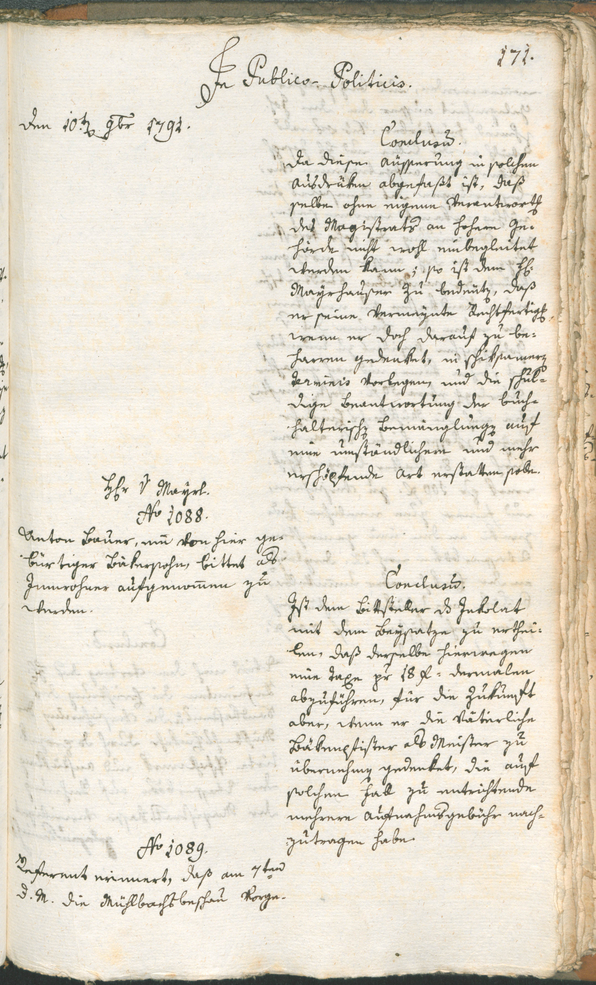 171.
In Publico-Politicis.
Den 10t 9br 1791.
Conclusũ.
Da diese Äusserung in solchen
Ausdrüken abgefaßt ist, daß
selbe ohne eigene Verantworth
des Magistrats an hohere Be-
hörde nicht wohl einbegleitet
werden kann; so ist dem H.
Mayrhauser zu bedeutꝫ, daß
er seine vermeynte Rechtfertigꝫ
wenn er doch darauf zu be-
harren gedenket, in schiksamerꝫ
terminis vorlegen, und die schul-
dige Beantwortung der buch-
halterischꝫ Bemänglungꝫ auf
eine umständlichere und mehr
erschöpfende Art erstatten solle.
Hr v Mayrl.
No 1088.
Anton Bauer, ein von hier ge-
bürtiger Bäkersohn, bittet als
Innwohner aufgenom̄en zu
werden.
Conclusũ.
Ist dem Bittsteller ds Inkolat
mit dem Beysatze zu erthei-
len, daß derselbe hierwegen
eine Taxe pr 18 f - dermalen
abzuführen, für die Zukunft
aber, wenn er die väterliche
Bäkenstifter als Meister zu
übernehmꝫ gedenket, die auf
solchen Fall zu entrichtende
mehrere Aufnahmsgebühr nach-
zutragen habe.
No 1089.
Referent erinnert, daß am 7ten
d. M. die Mühlbachsbeschau vorge-